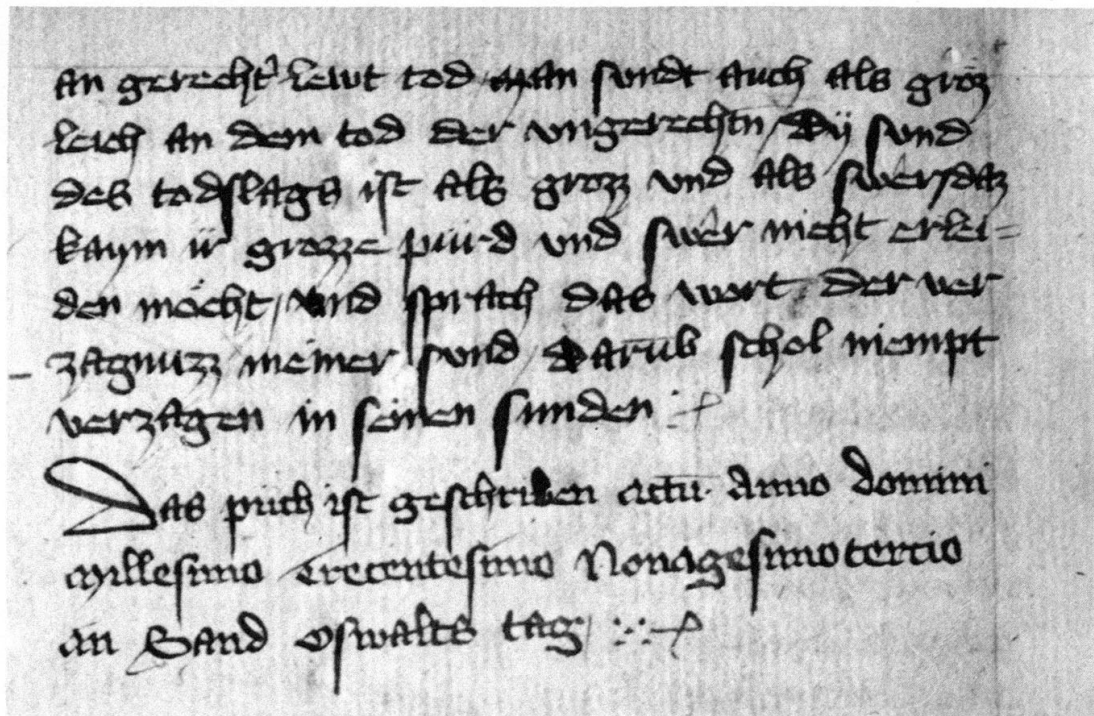 an gerecht' lewt tod man sundt auch als groz
leich an dem tod der ungerechtn / Dÿ sund
des todslags ist als grozz vnd als swer / daz
kaym ir grozze pürd vnd swer nicht erlei=
den möcht / vnd sprach das wort der ver
zagnuzz meiner sund / Darūb schol niempt
verzagen in seinen sunden
Das püch ist geschriben actū Anno domini
Millesimo Trecentesimo Nonagesimotercio
an Sand Oswalts tag